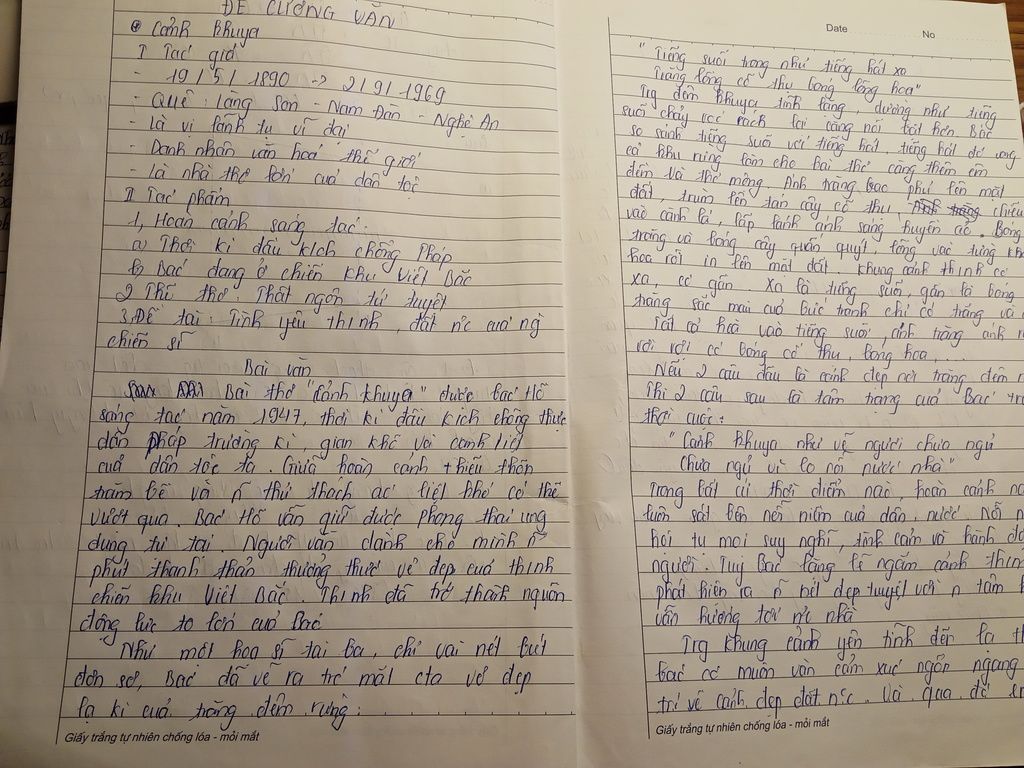 ĐỀ CƯƠNG VĂN
Cảnh khuya
I Tác giả
- 19/5/1890 -> 2/9/1969
- Quê: Làng Sen - Nam Đàn - Nghệ An
- Là vị lãnh tụ vĩ đại
- Danh nhân văn hoá thế giới
- Là nhà thơ lớn của dân tộc
II Tác phẩm
1, Hoàn cảnh sáng tác:
a) Thời kì đầu kích chống Pháp
b) Bác đang ở chiến khu Việt Bắc
2 Thể thơ: Thất ngôn tứ tuyệt
3. Đề tài: Tình yêu th nh, đất nc của ng
chiến sĩ
Bài văn
Bài thơ "Cảnh khuya" được bác Hồ
sáng tác năm 1947, thời kì đầu kích chống thực
dân pháp trường kì, gian khổ và
của dân tộc ta. Giữa hoàn cảnh thiếu thốn
trăm bề và n thử thách ác liệt khó có thể
vượt qua. Bác Hồ vẫn giữ được phong thái ung
dung tự tại. Người vẫn dành cho mình n
phút thanh thản thưởng thức vẻ đẹp của th nh
chiến khu Việt Bắc. Th nh đã trở thành nguồn
động lực to lớn của bác
Như một hoạ sĩ tài ba, chỉ vài nét bút
đơn sơ, Bác đã vẽ ra trc mắt cta vẻ đẹp
lạ kì của trăng đêm rừng:
Giấy trắng tự nhiên chống lóa - mỏi mắt
Date No
"Tiếng suối trong như tiếng hát xa
Trăng lồng cổ thụ bóng lồng hoa"
Trg đêm khuya tĩnh lặng, dường như tiếng
suối chảy róc rách lại càng nổi bật hơn. Bác
so sánh tiếng suối với tiếng hát, tiếng hát đó vang
cả khu rừng làm cho bài thơ càng thêm êm
đềm và thơ mộng. Ánh trăng bạc phủ lên mặt
đất, trùm lên tán cây cổ thụ, chiếu
vào cành lá, lấp lánh ánh sáng huyền ảo. Bóng
trăng và bóng cây quấn quýt, lồng vào từng
hoa rồi in lên mặt đất. Khung cảnh th nh có
xa, có gần. Xa là tiếng suối, gần là bóng
trăng sắc màu của bức tranh chỉ có trắng và
Tất cả hoà vào tiếng suối, ánh trăng
rời rợi có bóng cổ thụ, bóng hoa, ...
Nếu 2 câu đầu là cảnh đẹp nơi trăng đêm
Thì 2 câu sau là tâm trạng của Bác
thời cuộc:
"Cảnh khuya như vẽ người chưa ngủ
Chưa ngủ vì lo nỗi nước nhà"
Trong bất cứ thời điểm nào, hoàn cảnh
luôn sát bên nỗi niềm của dân, nước. Nỗi
hội tụ mọi suy nghĩ, tình cảm và hành
người. Tuy Bác lặng lẽ ngắm cảnh
phát hiện ra n nét đẹp tuyệt vời n tâm
vẫn hướng tới nc nhà
Trg khung cảnh yên tĩnh đến lạ
bác có muôn vàn cảm xúc ngổn ngang
trí về cảnh đẹp đất nc. Và qua đó
Giấy trắng tự nhiên chống lóa - mỏi mắt